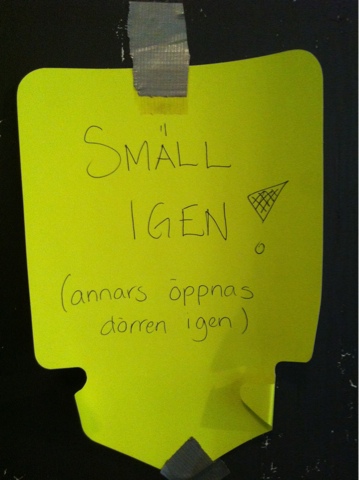 SMÄLL
IGEN!
(annars öppnas
dörren igen)